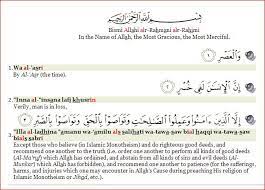 بِسْمِ اللَّهِ الرَّحْمَٰنِ الرَّحِيمِ
Bismi Allahi alr-Rahmani alr-Rahimi
In the Name of Allah, the Most Gracious, the Most Merciful.
وَالْعَصْرِ ١
1. Wa al-'asri
By Al-'Asr (the time).
إِنَّ الْإِنْسَانَ لَفِي خُسْرٍ ٢
2."Inna al-"insana lafi khusrin
Verily, man is in loss,
إِلَّا الَّذِينَ آمَنُوا وَعَمِلُوا الصَّالِحَاتِ وَتَوَاصَوْا بِالْحَقِّ وَتَوَاصَوْا بِالصَّبْرِ ٣
3.
"Illa al-ladhina "amanu wa-'amilu als salihati wa-tawa-saw bial haqqi wa-tawa-saw
bials sabri
Except those who believe (in Islamic Monotheism) and do righteous good deeds, and
recommend one another to the truth (i.e. order one another all kinds of good deeds
(Al-Ma'ruf) which Allah has ordained, and abstain from all kinds of sins and evil deeds (Al-
Munkar) which Allah has forbidden), and recommend one another to patience (for the
sufferings, harms, and injuries which one may encounter in Allah's Cause during preaching His religion of
Islamic Monotheism or Jihad, etc.).